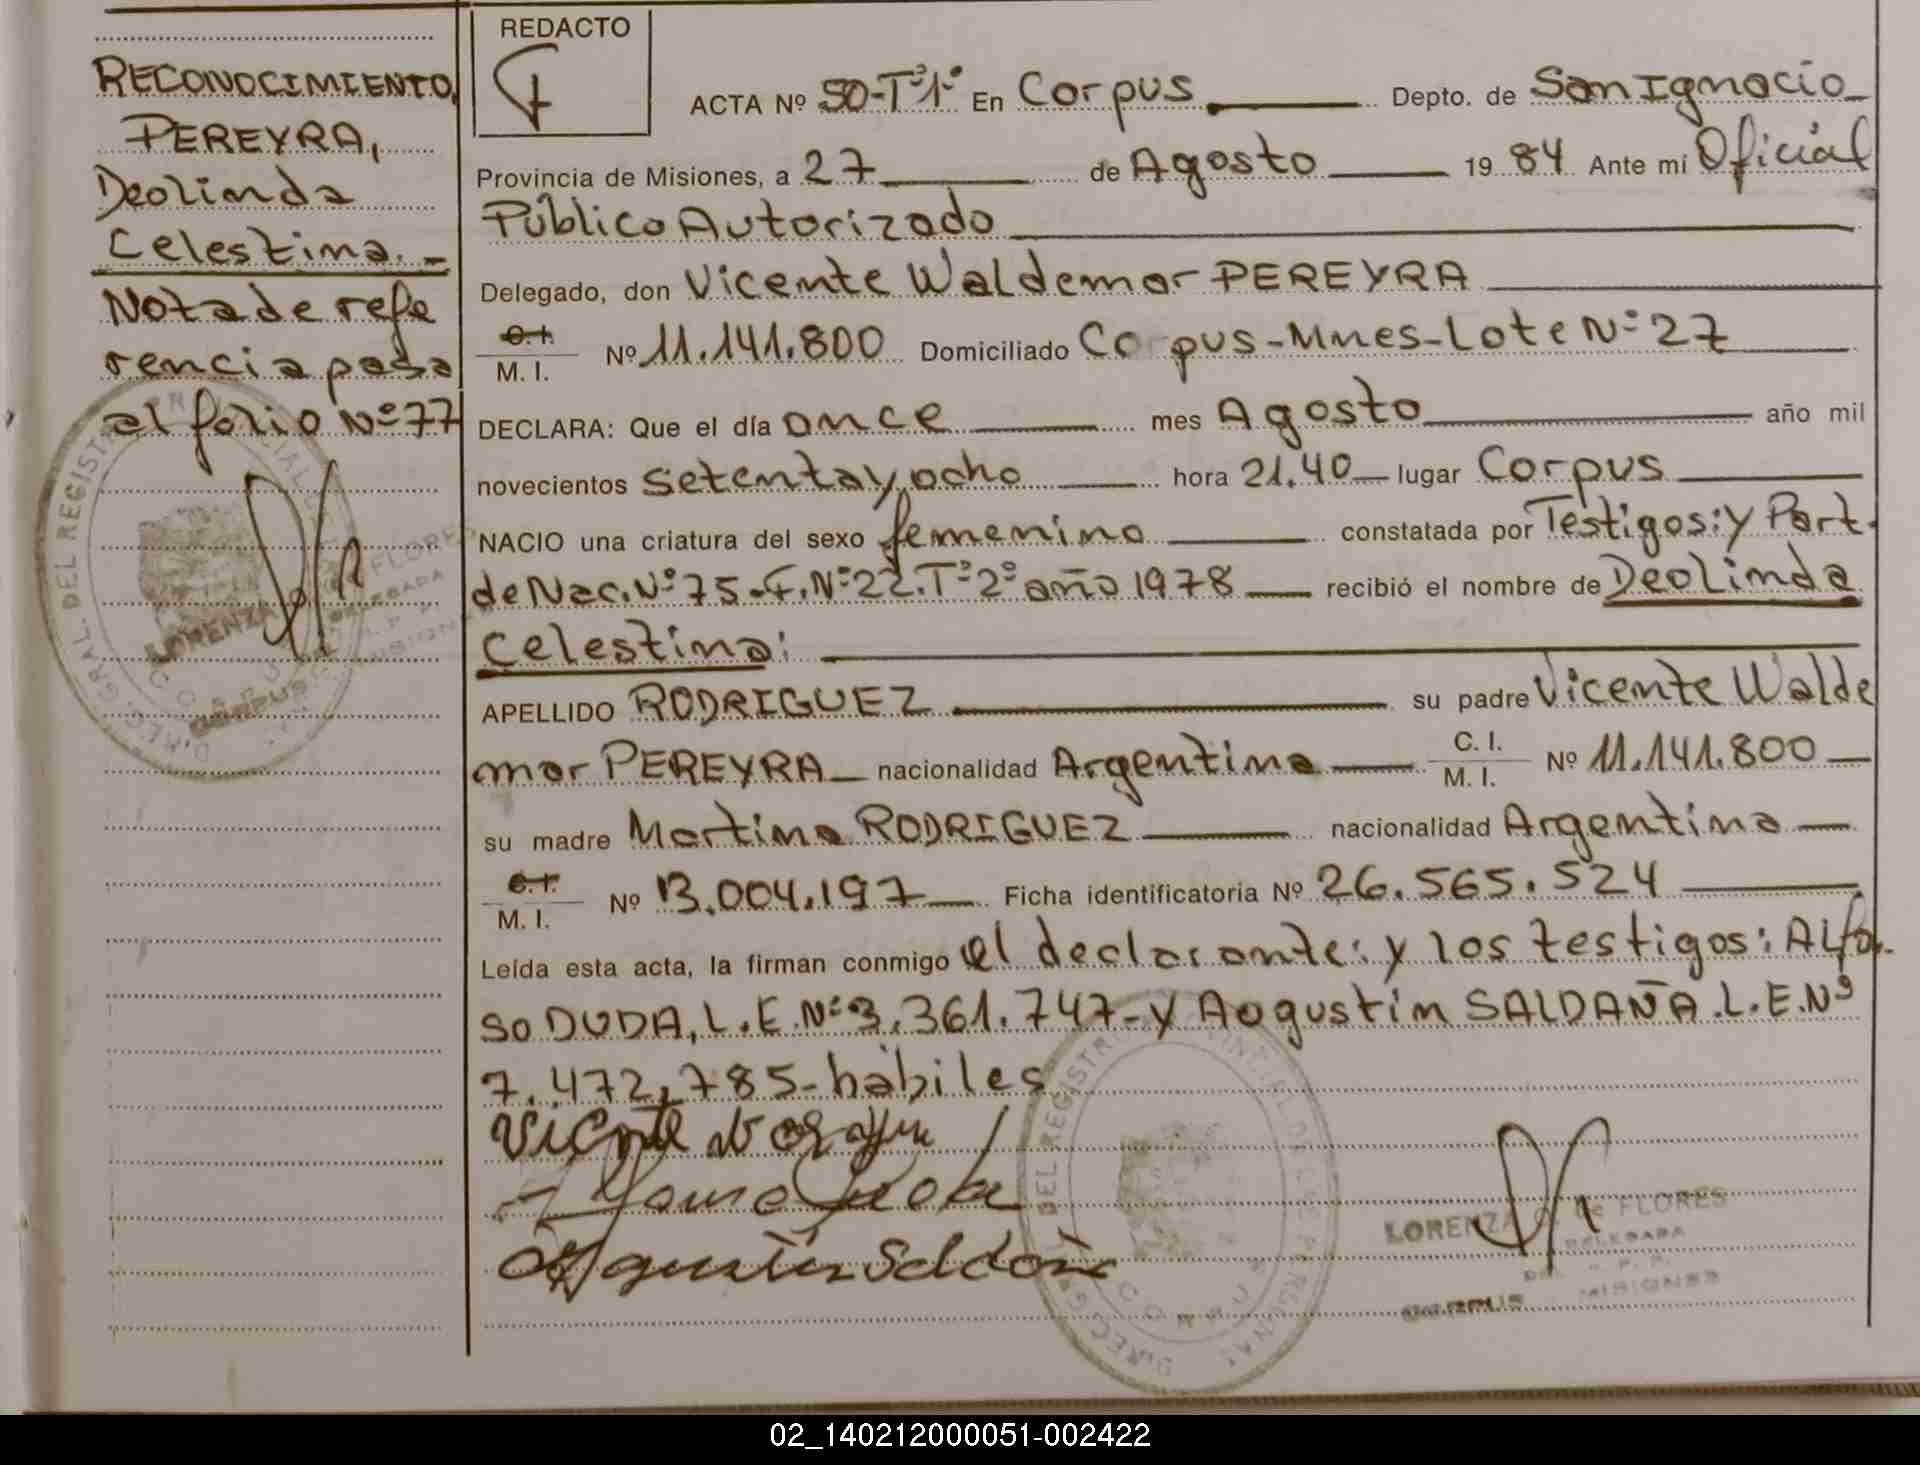 RECONOCIMIENTO,
PEREYRA,
Deolinda
Celestina.-
Nota de refe
rencia pasa
al folio Nº 77
REDACTO
ACTA Nº 50-Tº1º En Corpus Depto. de San Ignacio
Provincia de Misiones, a 27 de Agosto 1984 Ante mí Oficial
Público Autorizado
Delegado, don Vicente Waldemar PEREYRA
C.I.
M. I. Nº 11.141.800 Domiciliado Corpus-Mnes-Lote Nº 27
DECLARA: Que el día once mes Agosto año mil
novecientos setenta y ocho hora 21.40 lugar Corpus
NACIO una criatura del sexo femenino constatada por Testigos: y Part.
de Nac. Nº 75-F.Nº 22.Tº2º año 1978 recibió el nombre de Deolinda
Celestina:
APELLIDO RODRIGUEZ su padre Vicente Walde
mar PEREYRA nacionalidad Argentina C. I.
M. I. Nº 11.141.800
su madre Martina RODRIGUEZ nacionalidad Argentina
C.I.
M. I. Nº 13.004.197 Ficha identificatoria Nº 26.565.524
Leída esta acta, la firman conmigo el declarante: y los testigos: Alfo.
so DUDA, L.E.Nº 3.361.747-y Aogustin SALDAÑA.L.E.Nº
7.472.785-hábiles
Vicente
Agustin Saldaña
LORENZA G. de FLORES
DELEGADA
MISIONES
CORPUS
02_140212000051-002422